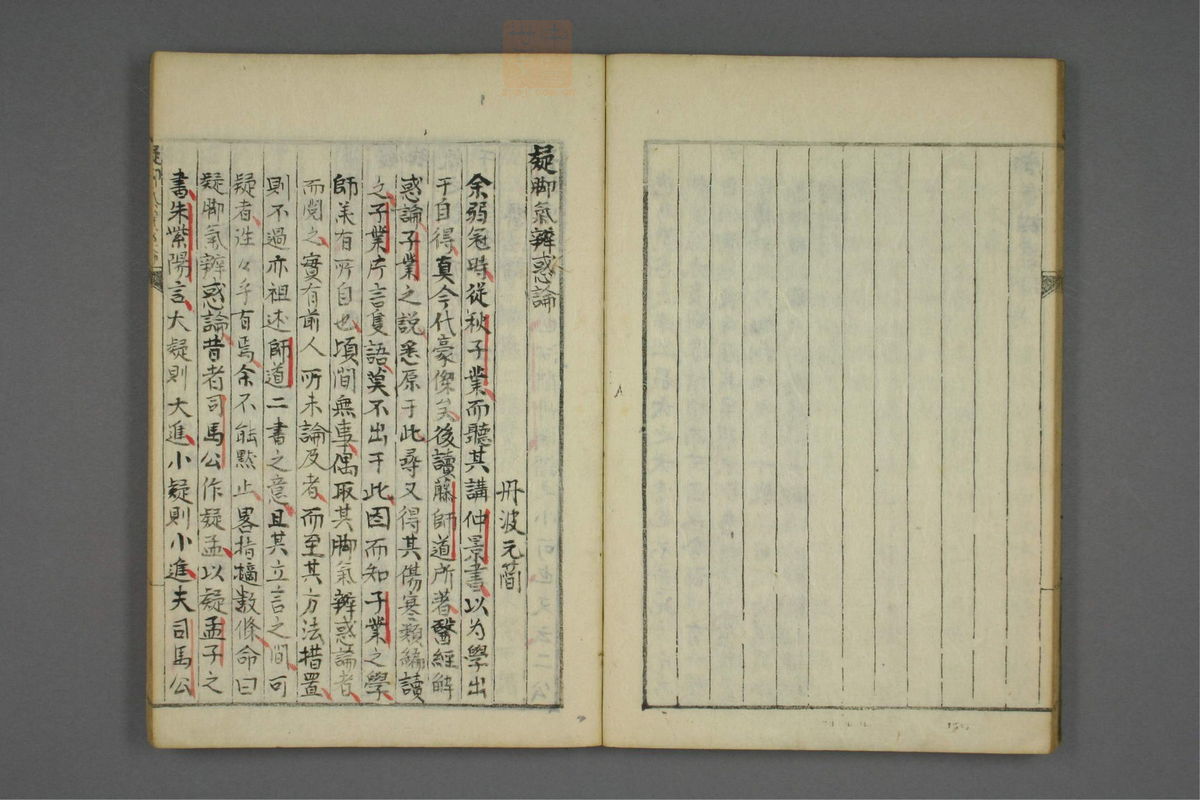 疑脚氣辨惑論
丹波元簡
余弱冠時從秋子業而聽其講仲景書以为學出
于自得真今代豪傑矣後讀藤師道所著醫經解
惑論子業之説悉原于此尋又得其傷寒類編讀
之子業片言隻語莫不出于此因而知子業之學
師羙有所自也頃間無事偶取其脚氣辨惑論者
而閲之實有前人所未論及者而至其方法措置
則不過亦祖述師道二書之意且其立言之間可
疑者徃々乎有焉余不能黙止畧指擿數條命曰
疑脚氣辨惑論昔者司馬公作疑孟以疑孟子之
書朱紫陽言大疑則大進小疑則小進夫司馬公